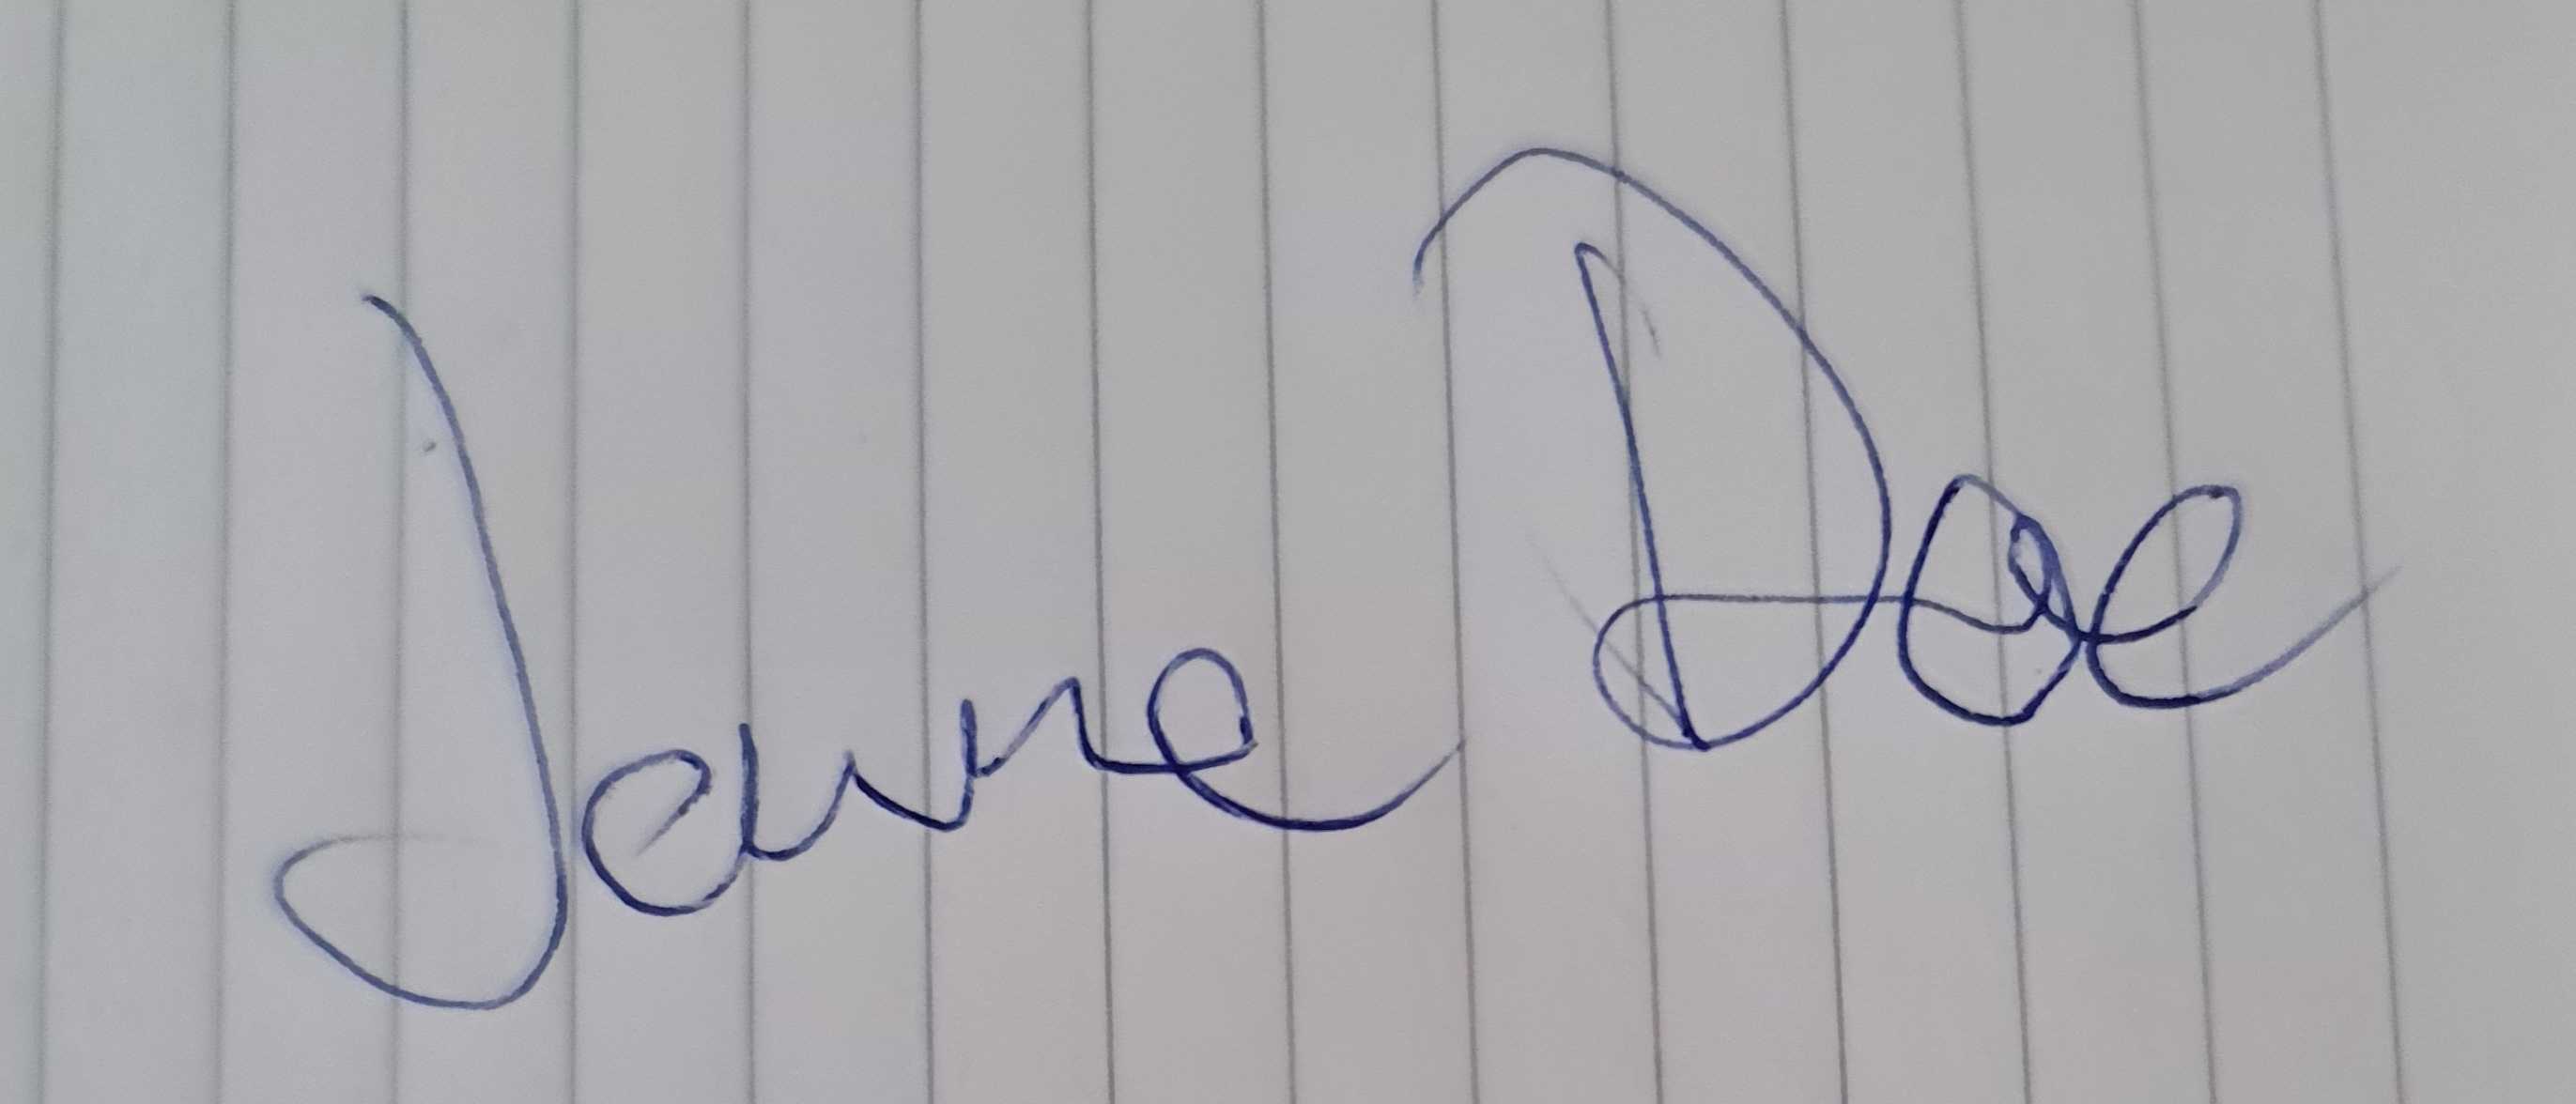 Janne Doe